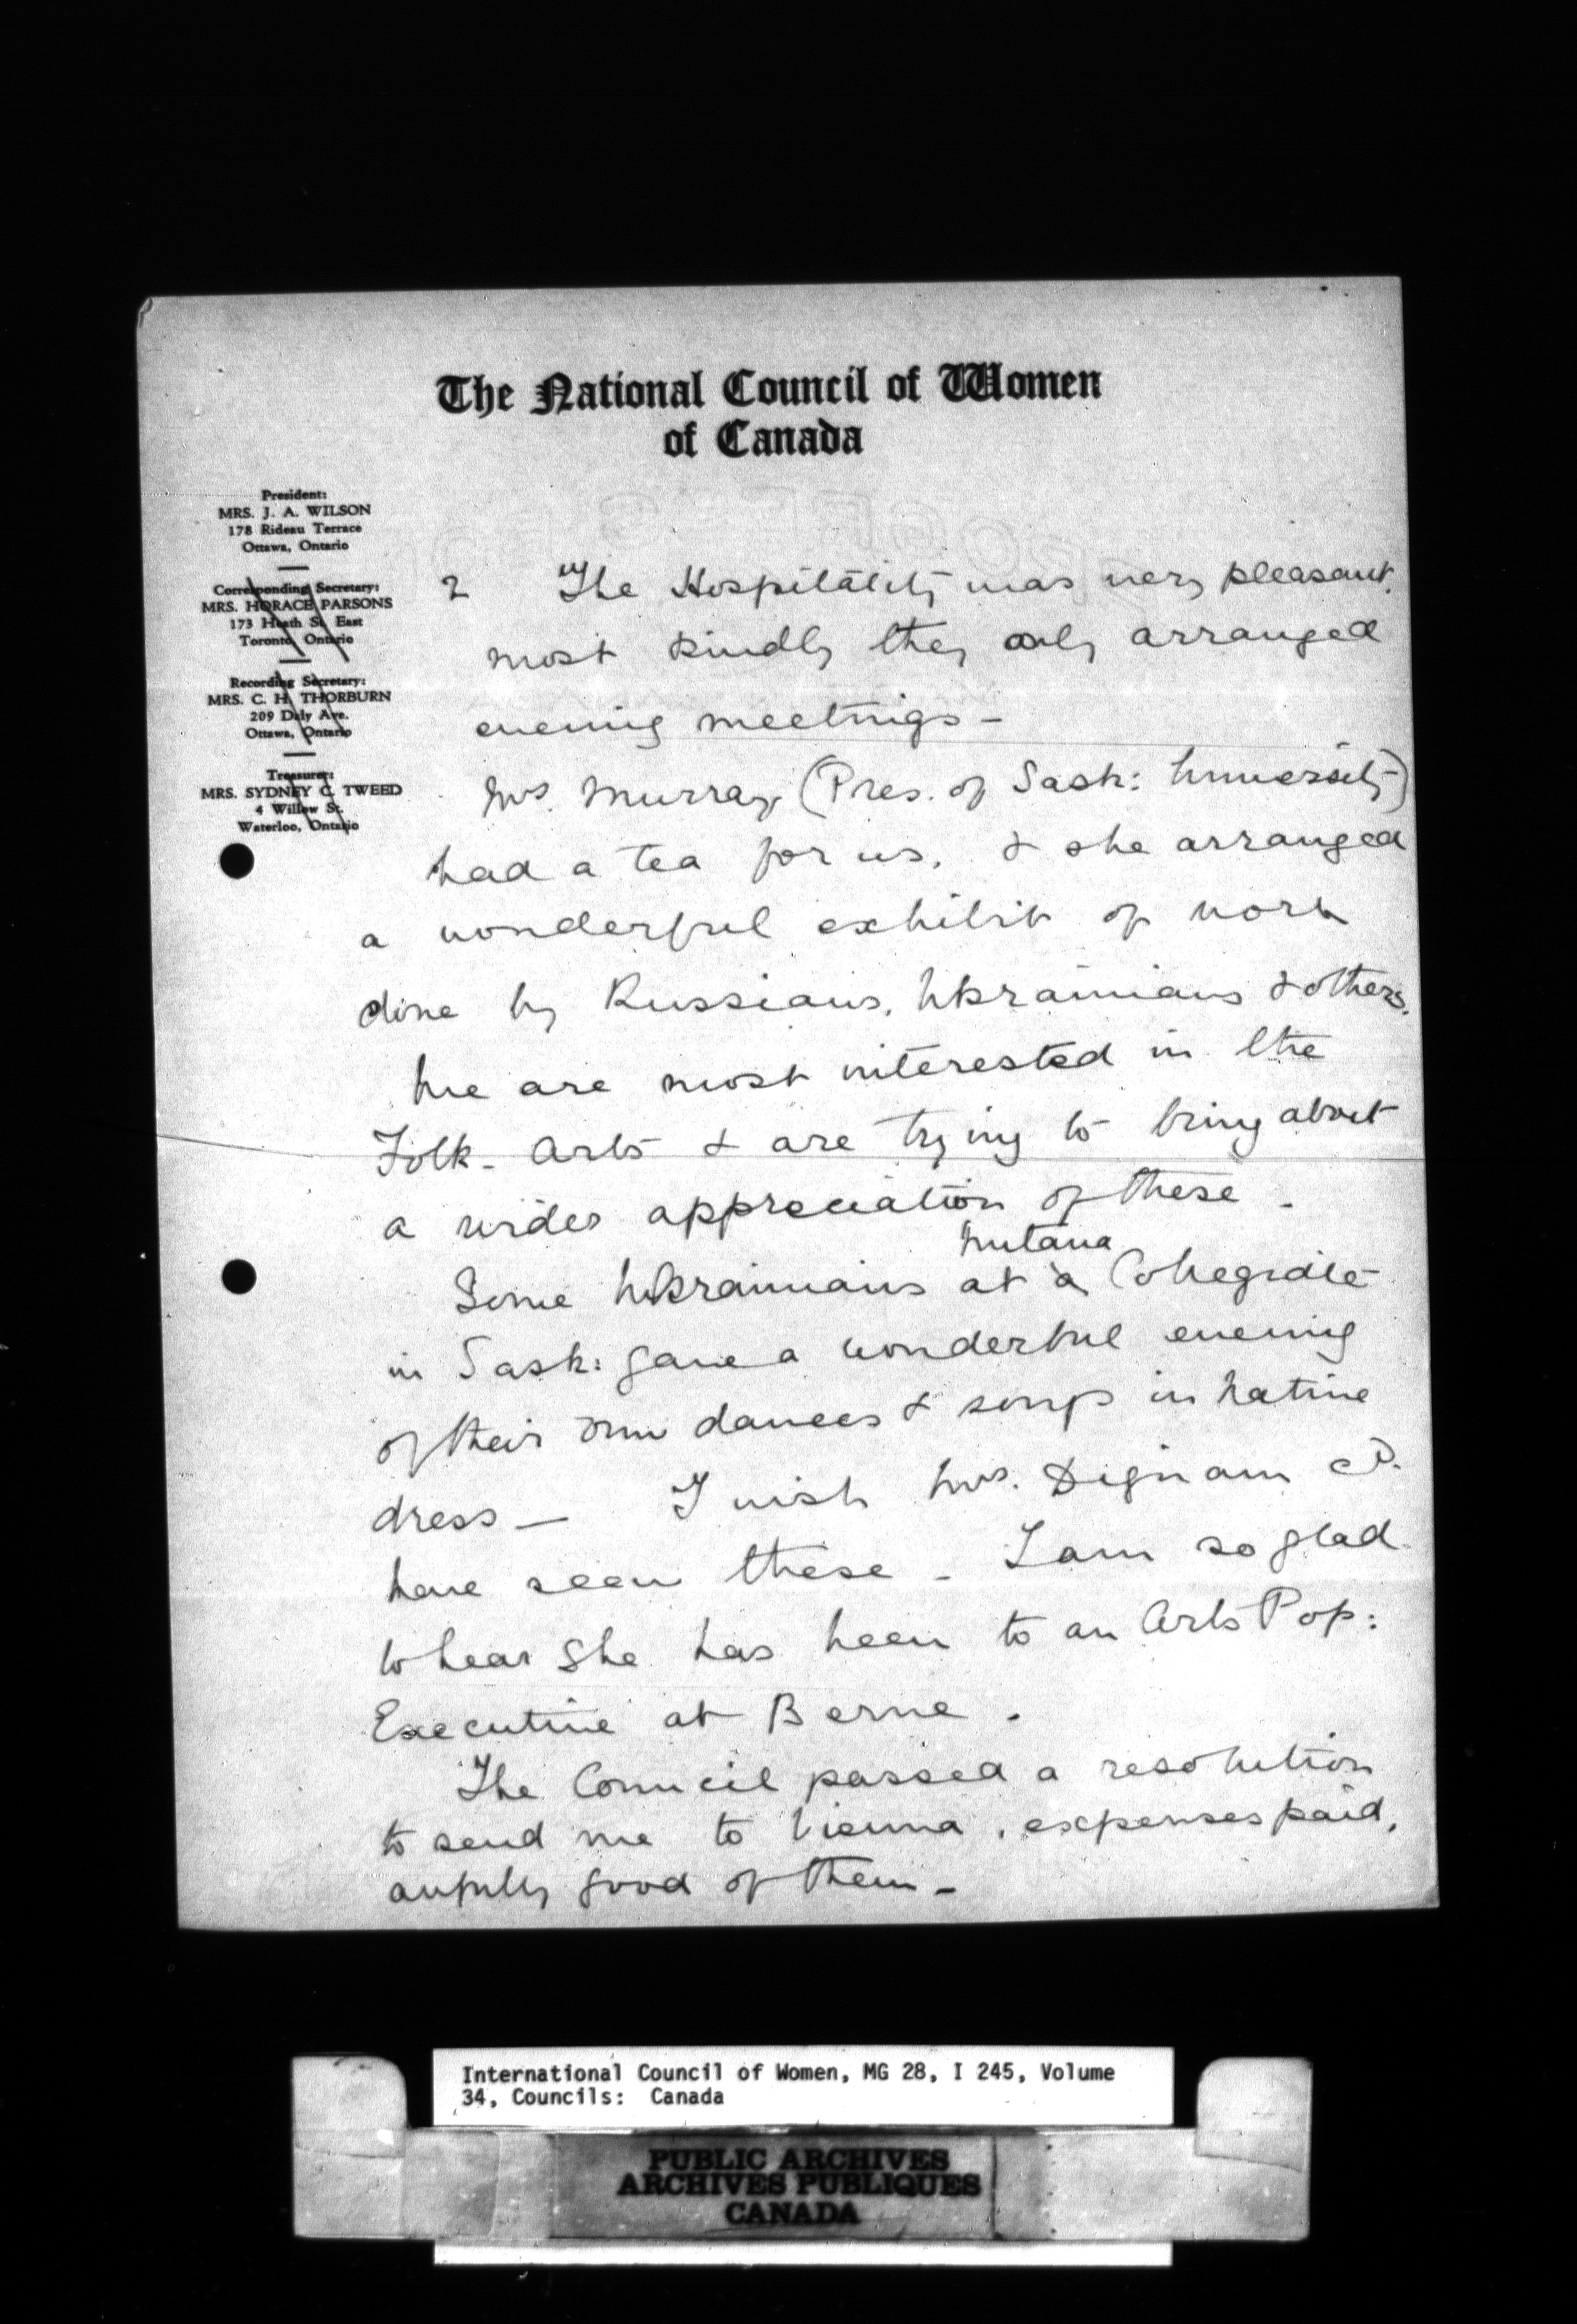 The National Council of Women
of Canada
President:
MRS. J. A. WILSON
178 Rideau Terrace
Ottawa, Ontario
Corresponding Secretary:
MRS. HORACE PARSONS
173 Heath St. East
Toronto, Ontario
Recording Secretary:
MRS. C. H. THORBURN
209 Daly Ave.
Ottawa, Ontario
Treasurer:
MRS. SYDNEY C. TWEED
4 Willow St.
Waterloo, Ontario
2 The Hospitality was very pleasant.
most kindly they only arranged
evening meetings –
Mrs. Murray (Pres. of Sask: University)
had a tea for us, & she arranged
a wonderful exhibit of work
done by Russians, Ukrainians & others.
We are most interested in the
Folk-Arts & are trying to bring about
a wider appreciation of these -
Nutana
Some Ukrainians at a Collegiate
in Sask: gave a wonderful evening
of their own dances & songs in native
dress – I wish Mrs. Dignam cd.
have seen these – I am so glad
to hear she has been to an Arts Pop:
Executive at Berne.
The Council passed a resolution
to send me to Vienna, expenses paid,
awfully good of them –
International Council of Women, MG 28, I 245, Volume
34, Councils: Canada
PUBLIC ARCHIVES
ARCHIVES PUBLIQUES
CANADA